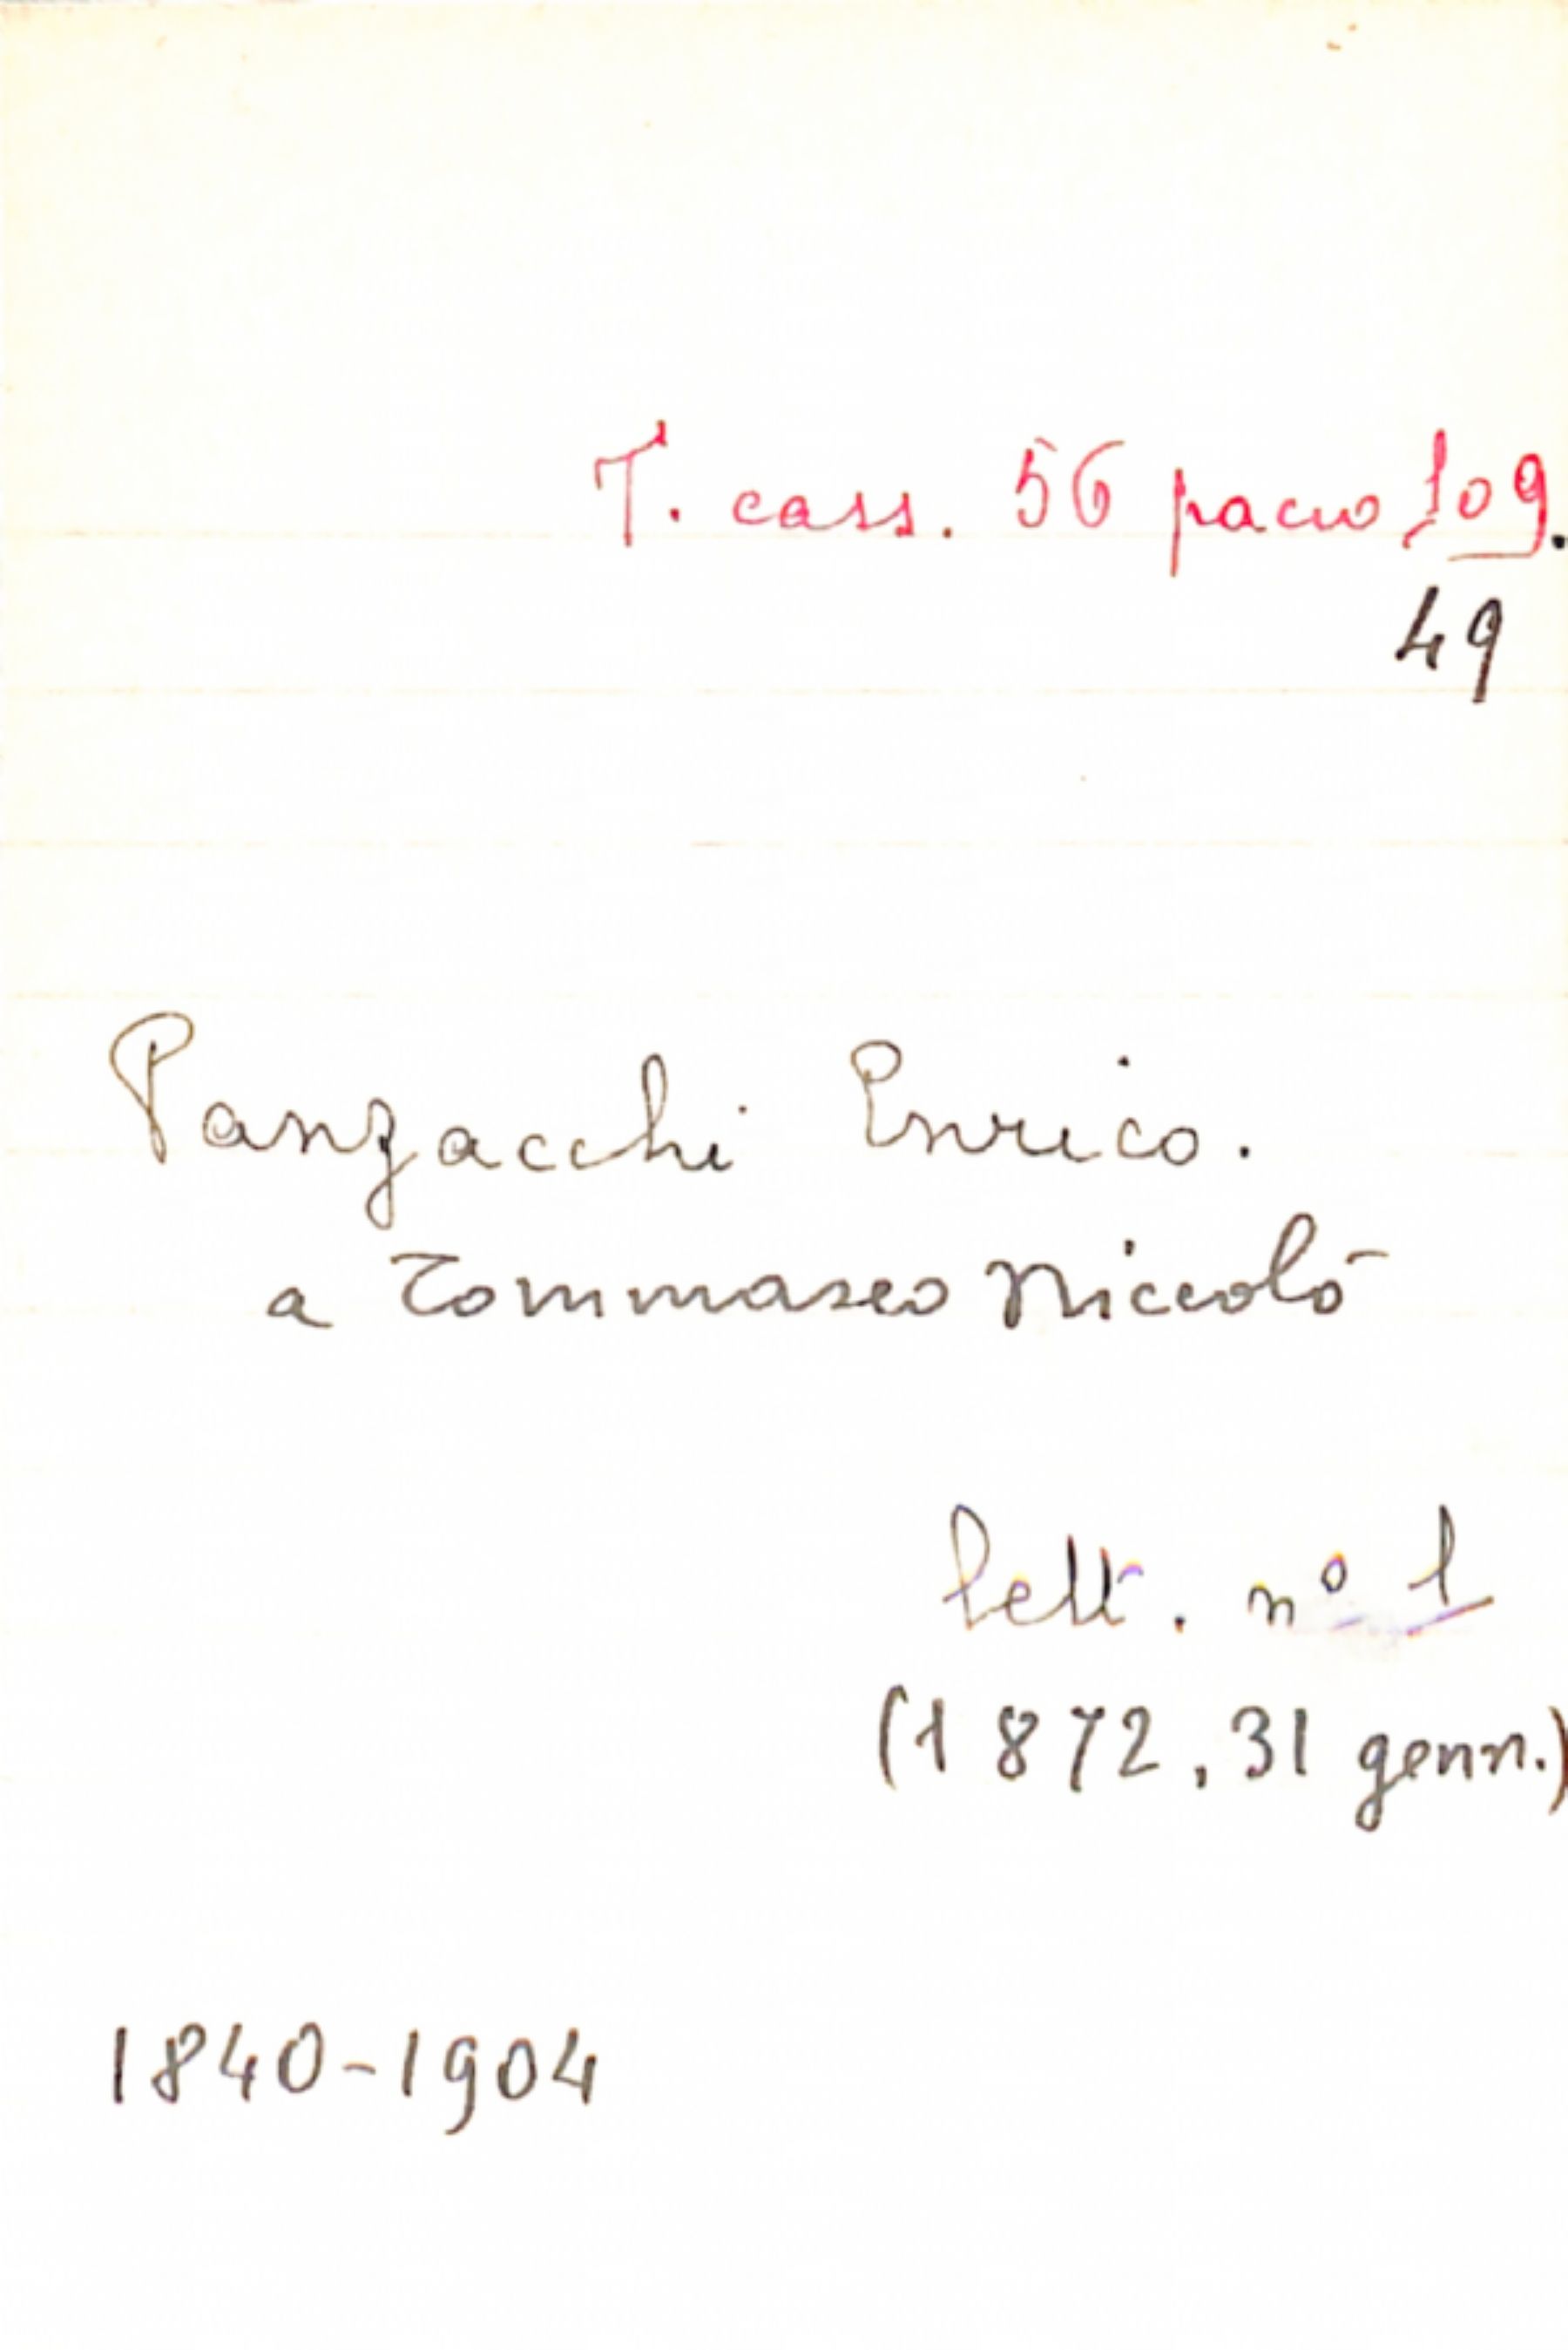 T. cass. 56 pacco 109.
49
Panzacchi Enrico.
a Tommaseo Niccolò
lett. nº 1
(1872, 31 genn.)
1840-1904